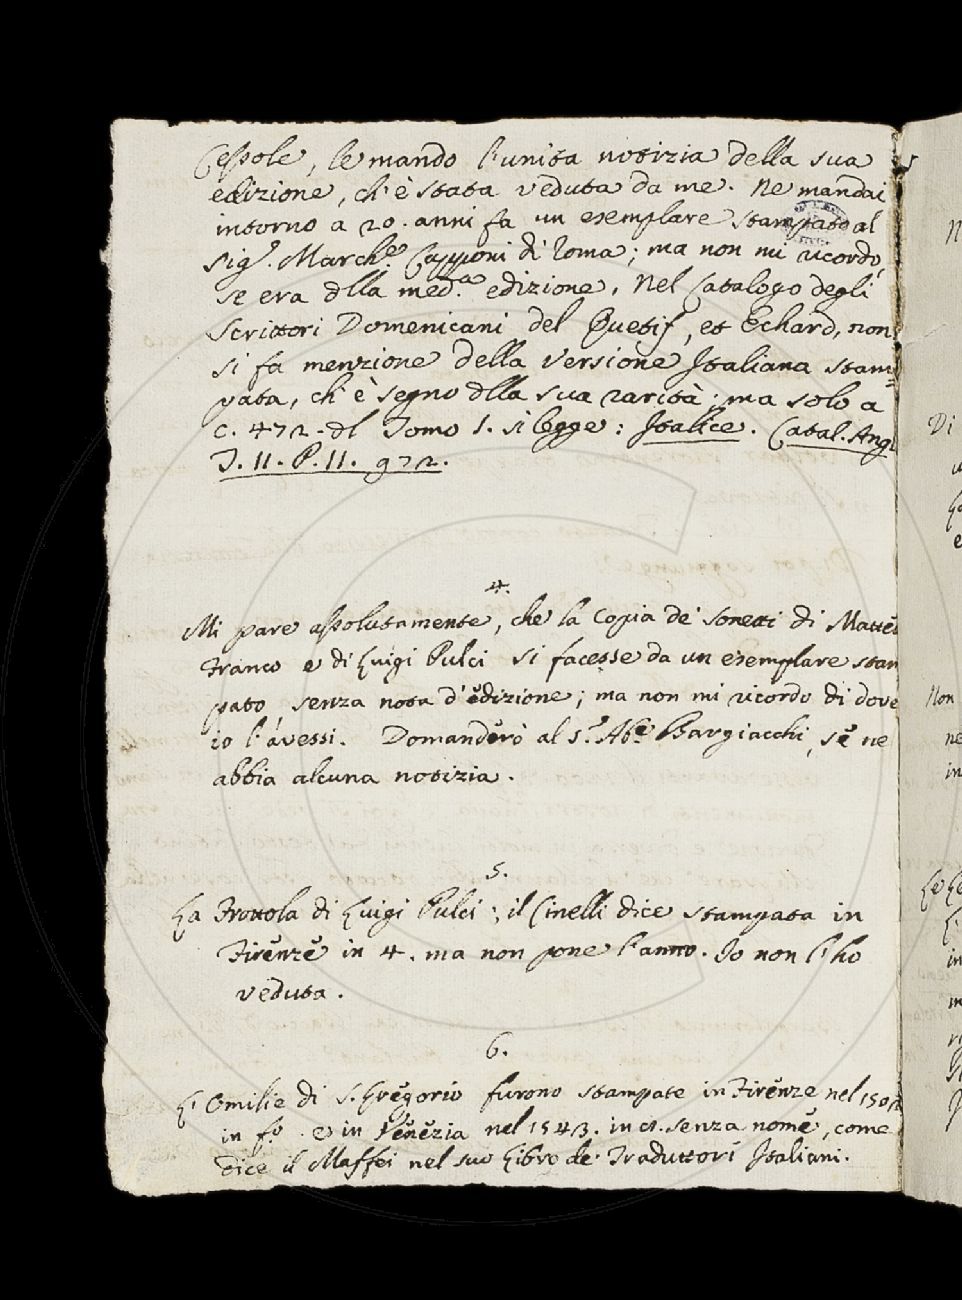 Cessole, le mando l'unita notizia della sua
edizione, ch'è stata veduta da me. Ne mandai
intorno a 20. anni fa un esemplare stampato al
Sig.r March.e Capponi di Roma; ma non mi ricordo,
se era dlla med.a edizione. Nel Catalogo degli
Scrittori Domenicani del Quetif, et Echard, non
si fa menzione della versione Italiana stam=
pata, ch'è segno dlla sua rarità; ma solo a
c. 472. dl Tomo I. si legge: Italice. Catal. Angl
T. II. P. II. 972.
4.
Mi pare assolutamente, che la Copia de' Sonetti di Matteo
Franco e di Luigi Pulci si facesse da un esemplare stam
pato, senza nota d'edizione; ma non mi ricordo di dove
io l'avessi. Domanderò al S.r Ab.e Bargiacchi, se ne
abbia alcuna notizia.
5.
La Frottola di Luigi Pulci; il Cinelli dice stampata in
Firenze in 4. ma non pone l'anno. Io non l'ho
veduta.
6.
L'Omilie di S. Gregorio furono stampate in Firenze nel 1502
in f.o e in Venezia nel 1543. in senza nome, come
dice il Maffei nel suo Libro de' Traduttori Italiani.
N
Di
e
Non
ne
in
in